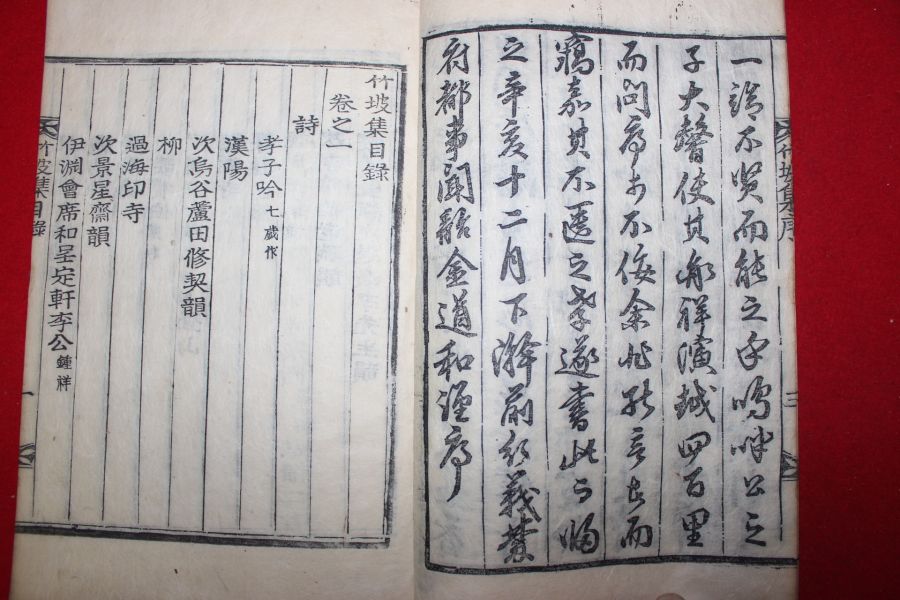 竹坡集序
三
一不賢而能之乎嗚呼公之
子大馨使其祥演越四百里
而問序於不佞余非能言者而
竊嘉其不匱之孝遂書此而歸
之辛亥十二月下澣前行義禁
府都事聞韶金道和謹序
竹坡集目錄
卷之一
詩
孝子吟七歲作
漢陽
次烏谷蘆田修契韻
柳
過海印寺
次景星齋韻
伊淵會席和呈定軒李公鍾祥
竹坡集目錄
一